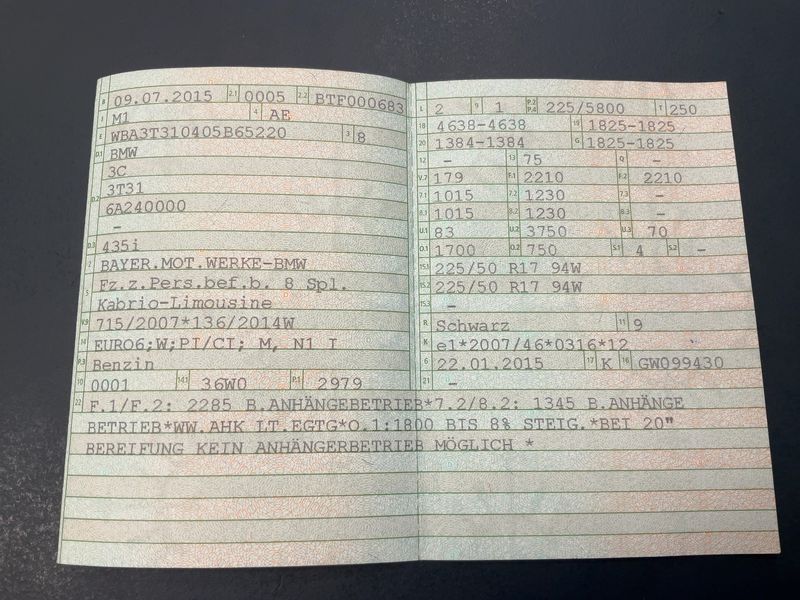 B 09.07.2015 2.1 0005 2.2 BTF000683
J M1 4 AE
E WBA3T310405B65220 3 8
D.1 BMW
3C
D.2 3T31
6A240000
–
D.3 435i
2 BAYER.MOT.WERKE-BMW
5 Fz.z.Pers.bef.b. 8 Spl.
Kabrio-Limousine
V.9 715/2007*136/2014W
14 EURO6;W;PI/CI; M, N1 I
P.3 Benzin
10 0001 14.1 36W0 P.1 2979
L 2 9 1 P.2 P.4 225/5800 T 250
18 4638-4638 19 1825-1825
20 1384-1384 G 1825-1825
12 – 13 75 Q –
V.7 179 F.1 2210 F.2 2210
7.1 1015 7.2 1230 7.3 –
8.1 1015 8.2 1230 8.3 –
U.1 83 U.2 3750 U.3 70
O.1 1700 O.2 750 S.1 4 S.2 –
15.1 225/50 R17 94W
15.2 225/50 R17 94W
15.3 –
R Schwarz 11 9
K e1*2007/46*0316*12
6 22.01.2015 17 K 16 GW099430
21 –
22 F.1/F.2: 2285 B.ANHÄNGEBETRIEB*7.2/8.2: 1345 B.ANHÄNGE
BETRIEB*WW.AHK LT.EGTG*O.1:1800 BIS 8% STEIG.*BEI 20"
BEREIFUNG KEIN ANHÄNGERBETRIEB MÖGLICH *